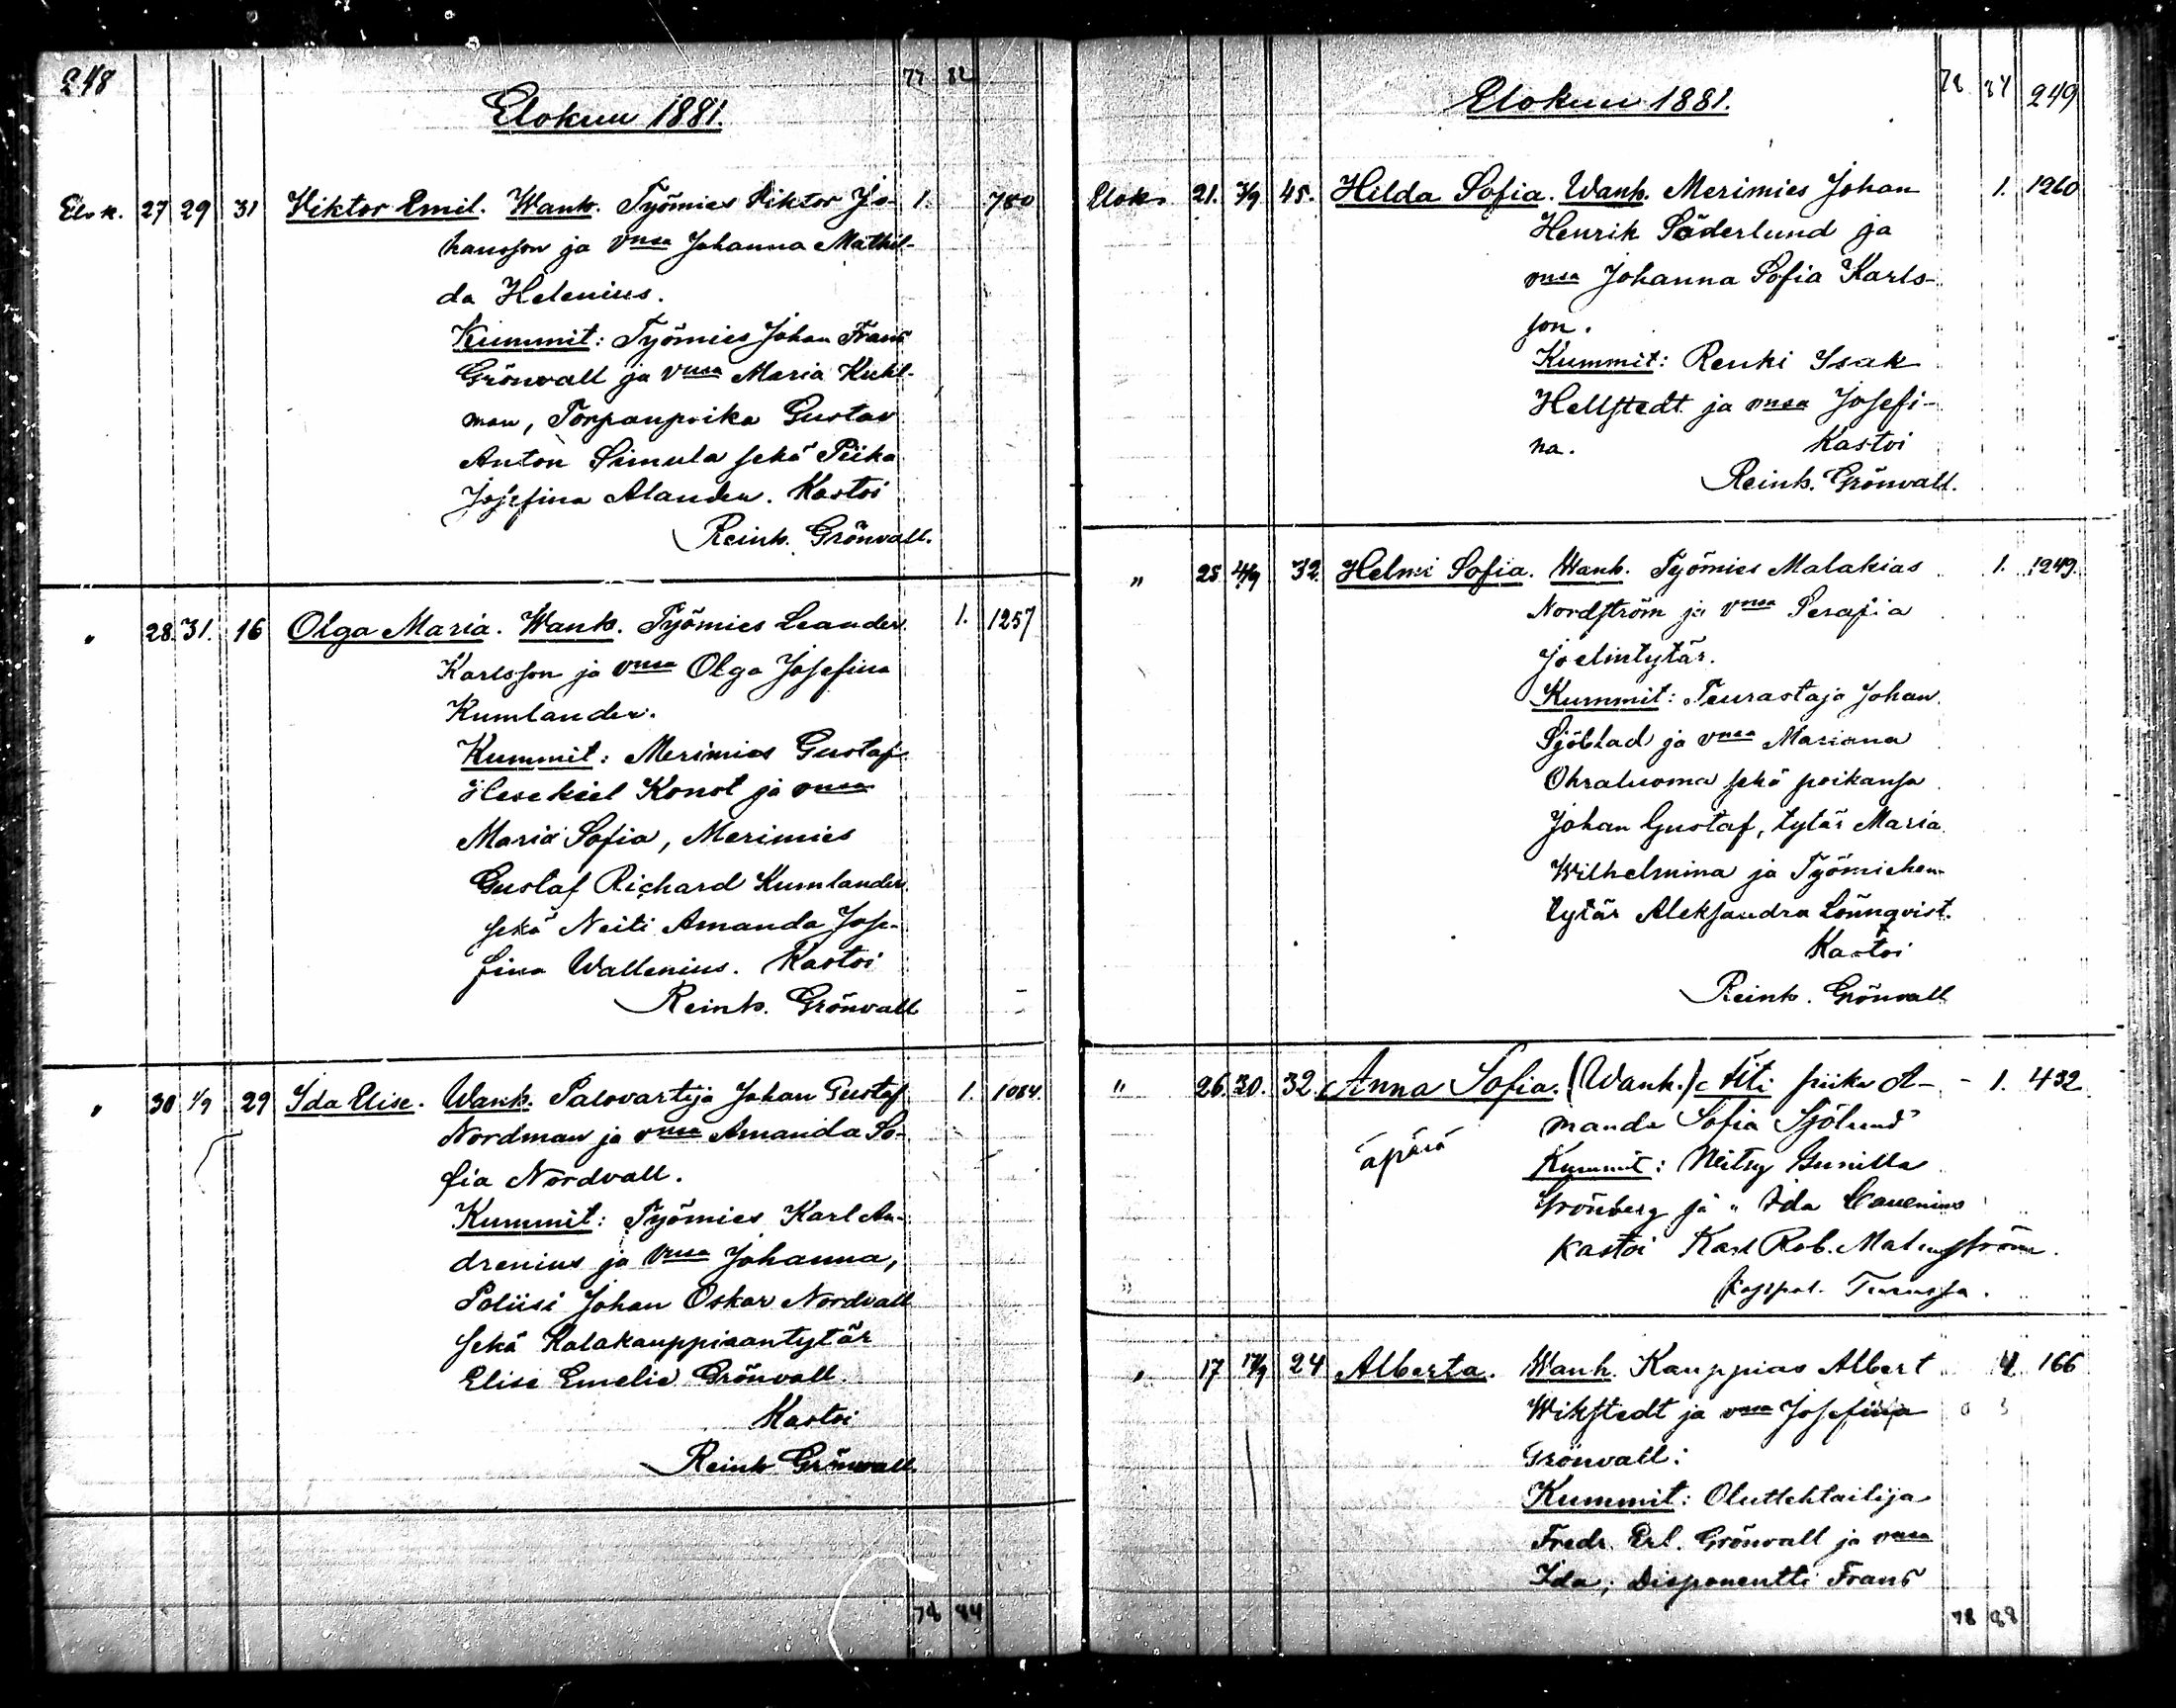 248
77 82
Elokuu 1881.
Elok. 27 29 31 Viktor Emil. Wanh. Työmies Viktor Jo- 1. 780
hansson ja vmsa Johanna Mathil-
da Helenius.
Kummit: Työmies Johan Frans
Grönvall ja vmsa Maria Kuhl-
man, Torpanpoika Gustav
Anton Simula sekä Piika
Josefina Alander. Kastoi
Reinh. Grönvall.
" 28. 31. 16 Olga Maria. Wanh. Työmies Leander 1. 1257
Karlsson ja vmsa Olga Josefina
Kumlander.
Kummit: Merimies Gustaf
Hesekiel Konst ja vmsa
Maria Sofia, Merimies
Gustaf Richard Kumlander
sekä Neiti Amanda Jose-
fina Wallenius. Kastoi
Reinh. Grönvall
" 30 1/9 29 Ida Elise. Wanh. Palovartija Johan Gustaf 1. 1084.
Nordman ja vmsa Amanda So-
fia Nordvall.
Kummit: Työmies Karl An-
drenius ja vmsa Johanna,
Poliisi Johan Oskar Nordvall
sekä Kalakauppiaantytär
Elise Emelie Grönvall.
Kastoi
Reinh. Grönvall.
78 84
78 84 249
Elokuu 1881.
Elok. 21. 3/9 45. Hilda Sofia. Wanh. Merimies Johan 1. 1260
Henrik Söderlund ja
vmsa Johanna Sofia Karls-
son.
Kummit: Renki Isak
Hellstedt ja vmsa Josefi-
na. Kastoi
Reinh. Grönvall.
" 25 4/9 32. Helmi Sofia. Wanh. Työmies Malakias 1. 1249.
Nordström ja vmsa Serafia
Joelintytär.
Kummit: Teurastaja Johan
Sjöblad ja vmsa Marianna
Ohraluoma sekä poikansa
Johan Gustaf, tytär Maria
Wilhelmina ja Työmiehen-
tytär Aleksandra Lönnqvist.
Kastoi
Reinh. Grönvall
" 26. 30. 32. Anna Sofia. (Wanh.) Äiti piika A- 1. 432
manda Sofia Sjölund
äpärä
Kummit: Neitsy Gunilla
Grönberg ja " Ida
Kastoi Karl Rob. Malmström.
kappal. Turussa.
" 17 17/9 24 Alberta. Wanh. Kauppias Albert 4. 166
Wikstedt ja vmsa Josefina
Grönvall.
Kummit: Oluttehtailija
Fredr. Erl. Grönvall ja vmsa
Ida, Disponentti Frans
78 88